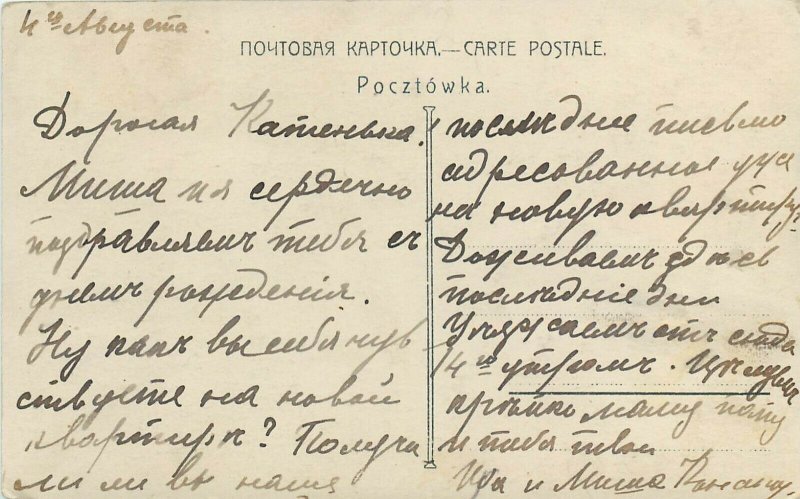 4го Августа.
ПОЧТОВАЯ КАРТОЧКА.—CARTE POSTALE.
Pocztówka.
Дорогая Катенька!
Миша и я сердечно
поздравляемъ тебя съ
днемъ рожденія.
Ну какъ вы себя чув
ствуете на новой
квартирѣ? Получи
ли ли вы наше
послѣднее письмо
адресованное уже
на новую квартиру.
Доживаемъ здѣсь
послѣдніе дни
Уѣзжаемъ отъ сюда
14го утромъ. Цѣлуемъ
крѣпко маму папу
и тебя твои
и Миша